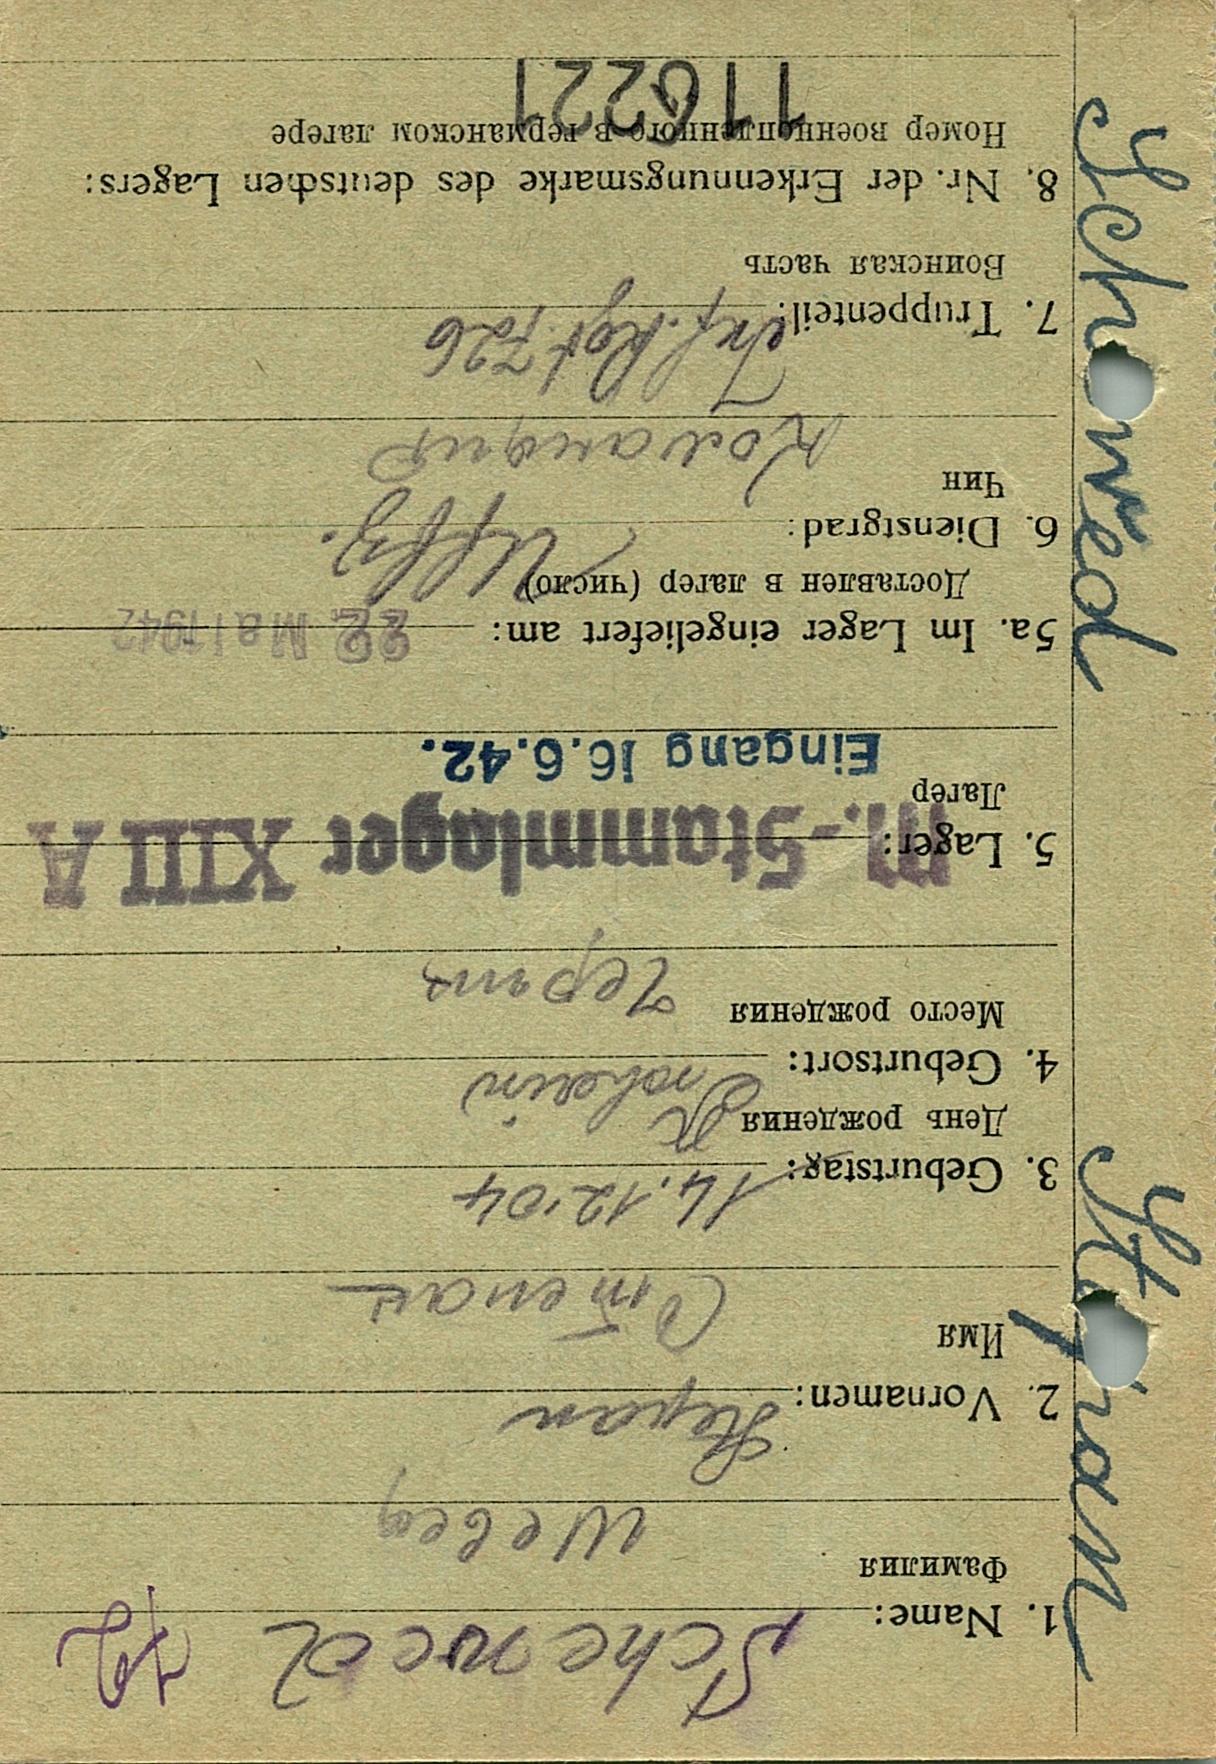 1. Name: Schewed
42
Фамилия
Шевед
2. Vornamen: Stepan
Имя
Степан
3. Geburtstag: 14.12.04
День рождения
4. Geburtsort:
Место рождения
5. Lager: M.-Stammlager XIII A
Лагер
Eingang 16.6.42.
5a. Im Lager eingeliefert am: 22. Mai 1942
Доставлен в лагер (число)
6. Dienstgrad: Uffz.
Чин
7. Truppenteil: Inf. Rgt. 726
Воинская часть
8. Nr. der Erkennungsmarke des deutschen Lagers:
Номер военнопленного в германском лагере
116221
Schewed
Stepan